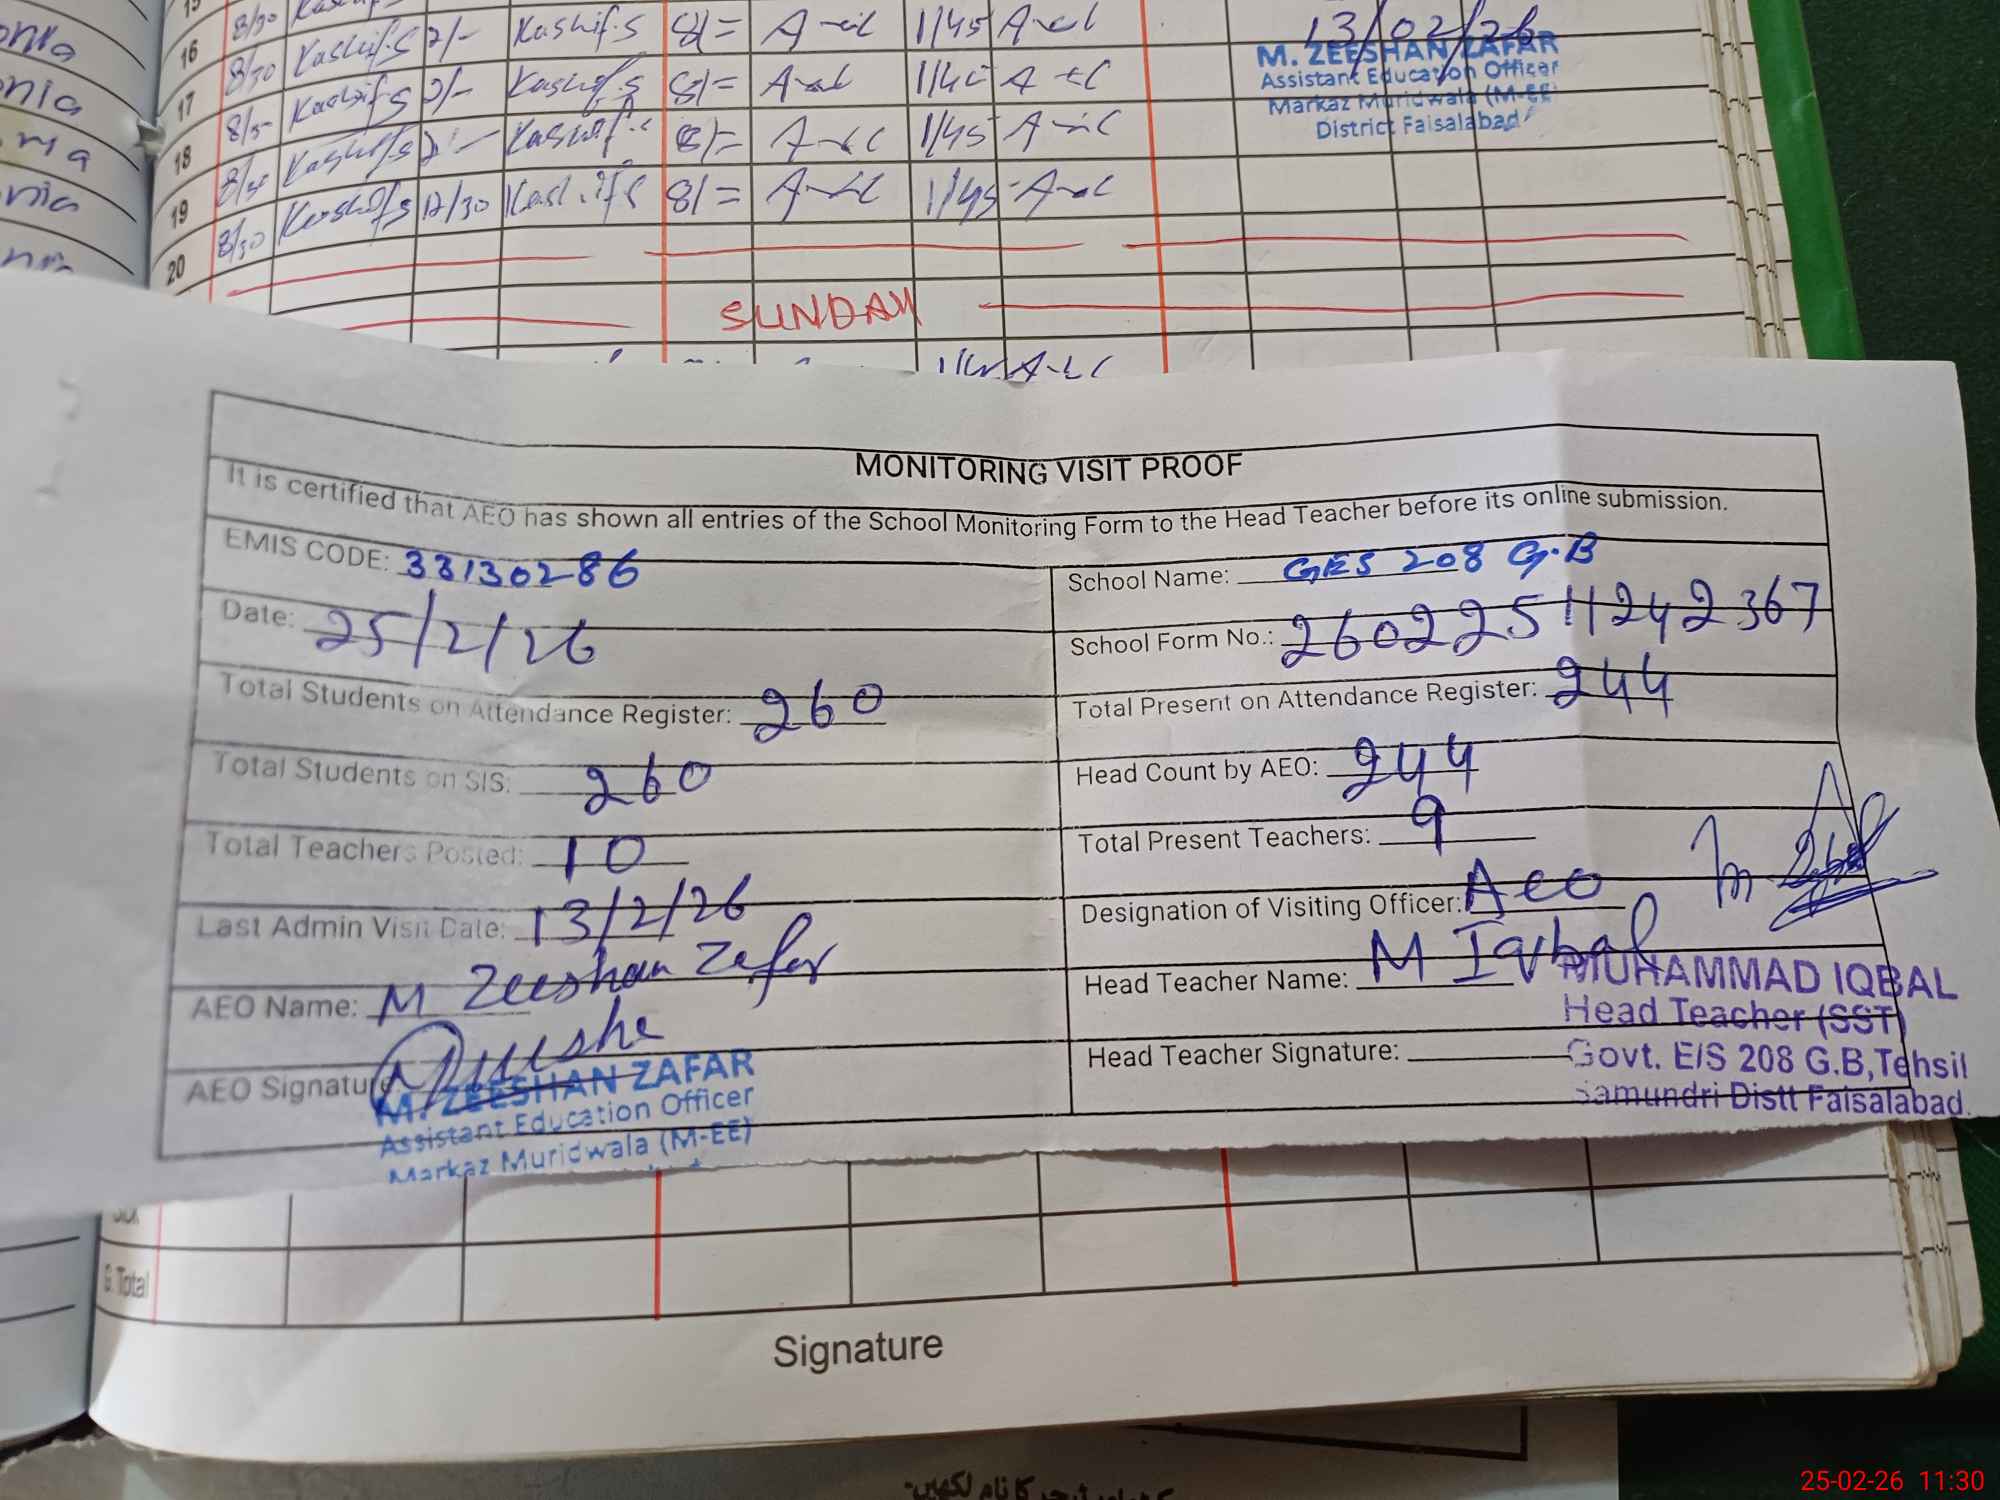 16 8/30 Kashif.S 2/- Kashif.S 8/= 1/45
17 8/30 Kashif.S 2/- Kashif.S 8/=
18 Kashif.S 8/= 1/45
19 Kashif.S 12/30 Kashif.S 8/= 1/45
20 8/30
13/02/26
M. ZEESHAN ZAFAR
Assistant Education Officer
Markaz Muridwala (M-EE)
District Faisalabad
SUNDAY
MONITORING VISIT PROOF
It is certified that AEO has shown all entries of the School Monitoring Form to the Head Teacher before its online submission.
EMIS CODE: 33130286
School Name: GES 208 G.B
Date: 25/2/26
School Form No.: 26022511242367
Total Students on Attendance Register: 260
Total Present on Attendance Register: 244
Total Students on SIS: 260
Head Count by AEO: 244
Total Teachers Posted: 10
Total Present Teachers: 9
Last Admin Visit Date: 13/2/26
Designation of Visiting Officer: Aeo
AEO Name: M Zeeshan Zafar
Head Teacher Name: M Iqbal
AEO Signature
Head Teacher Signature:
M. ZEESHAN ZAFAR
Assistant Education Officer
Markaz Muridwala (M-EE)
MUHAMMAD IQBAL
Head Teacher (SST)
Govt. E/S 208 G.B, Tehsil
Samundri Distt Faisalabad.
G. Total
Signature
ٹیچر کا نام لکھیں۔
25-02-26 11:30